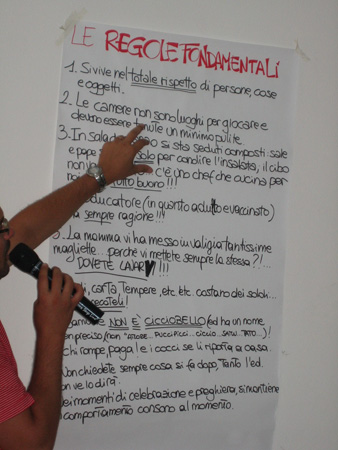 LE REGOLE FONDAMENTALI
1. Si vive nel totale rispetto di persone, cose
e oggetti.
2. Le camere non sono luoghi per giocare e
devono essere tenute un minimo pulite.
3. In sala da o si sta seduti composti. sale
e pepe olo per condire l'insalata, il cibo
non v c'è uno chef che cucina per
noi tutto buono!!!
educatore (in quanto adulto e vaccinato)
ha sempre ragione!!!
5. La mamma vi ha messo in valigia tantissime
magliette... perchè vi mettete sempre la stessa?!...
DOVETE LAVARVI!!!
i, carta, tempere, etc. etc. costano dei soldi...
NON È CICCIOBELLO (ed ha un nome,
en preciso (non
Chi rompe, paga! e i cocci se li riporta a casa.
Non chiedete sempre cosa si fa dopo, tanto l'ed.
on ve lo dirà.
ei momenti di celebrazione e preghiera, si mantiene
comportamento consono al momento.